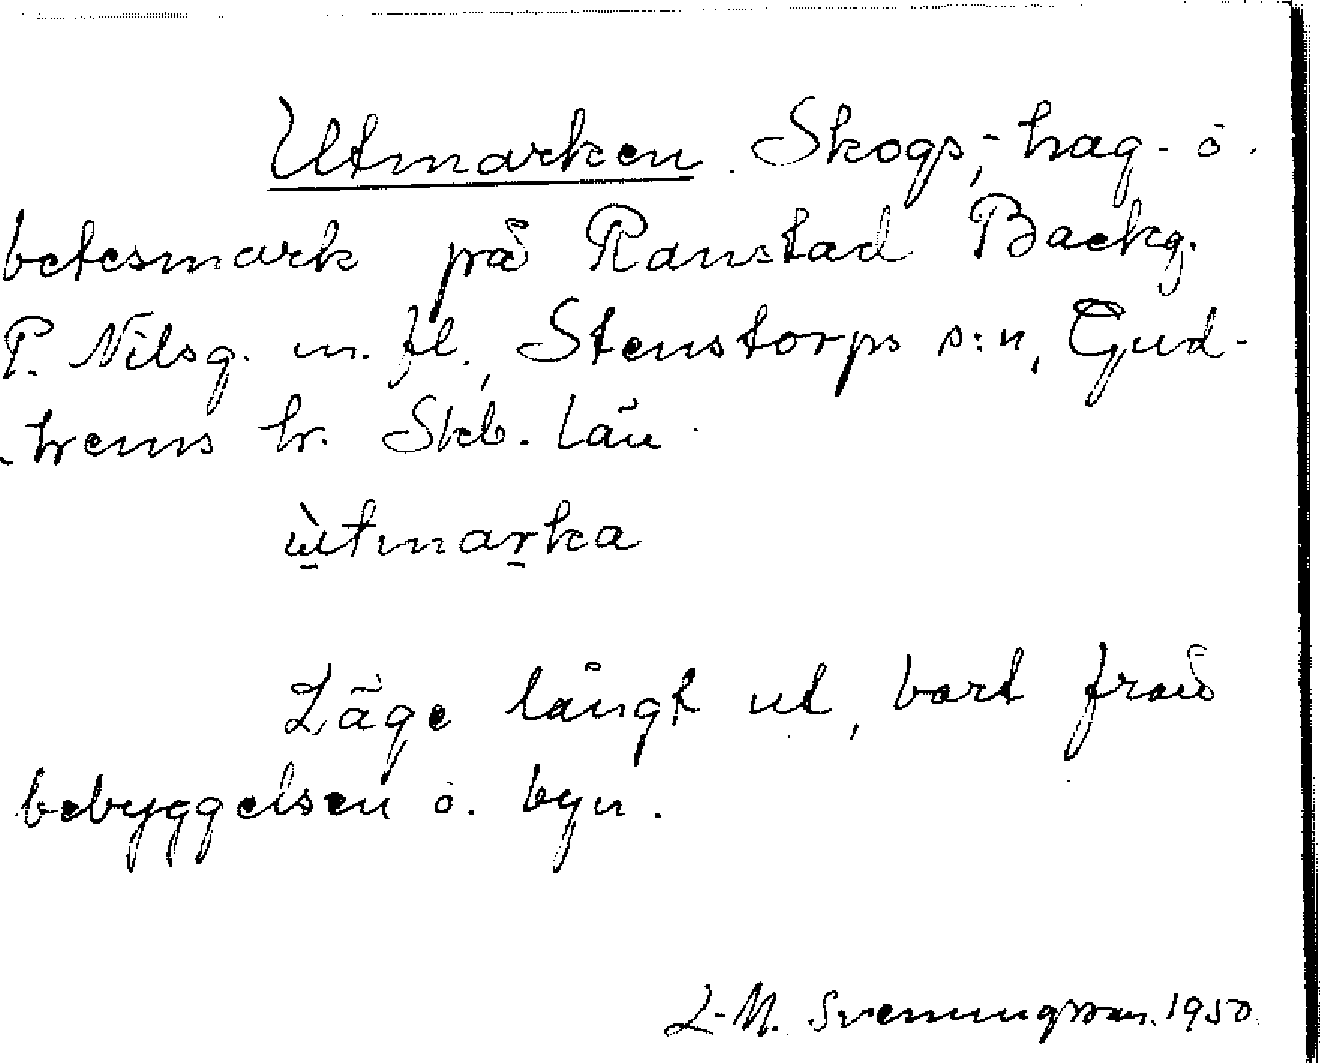 Utmarken. Skogs-, hag- o.
betesmark på Ranstad Backg.
P. Nilsg. m. fl., Stenstorps s:n, Gud-
hems hr. Skb. län.
ùtmarka
Läge långt ut, bort från
bebyggelsen o. byn.
L-M. Svenungsson. 1950